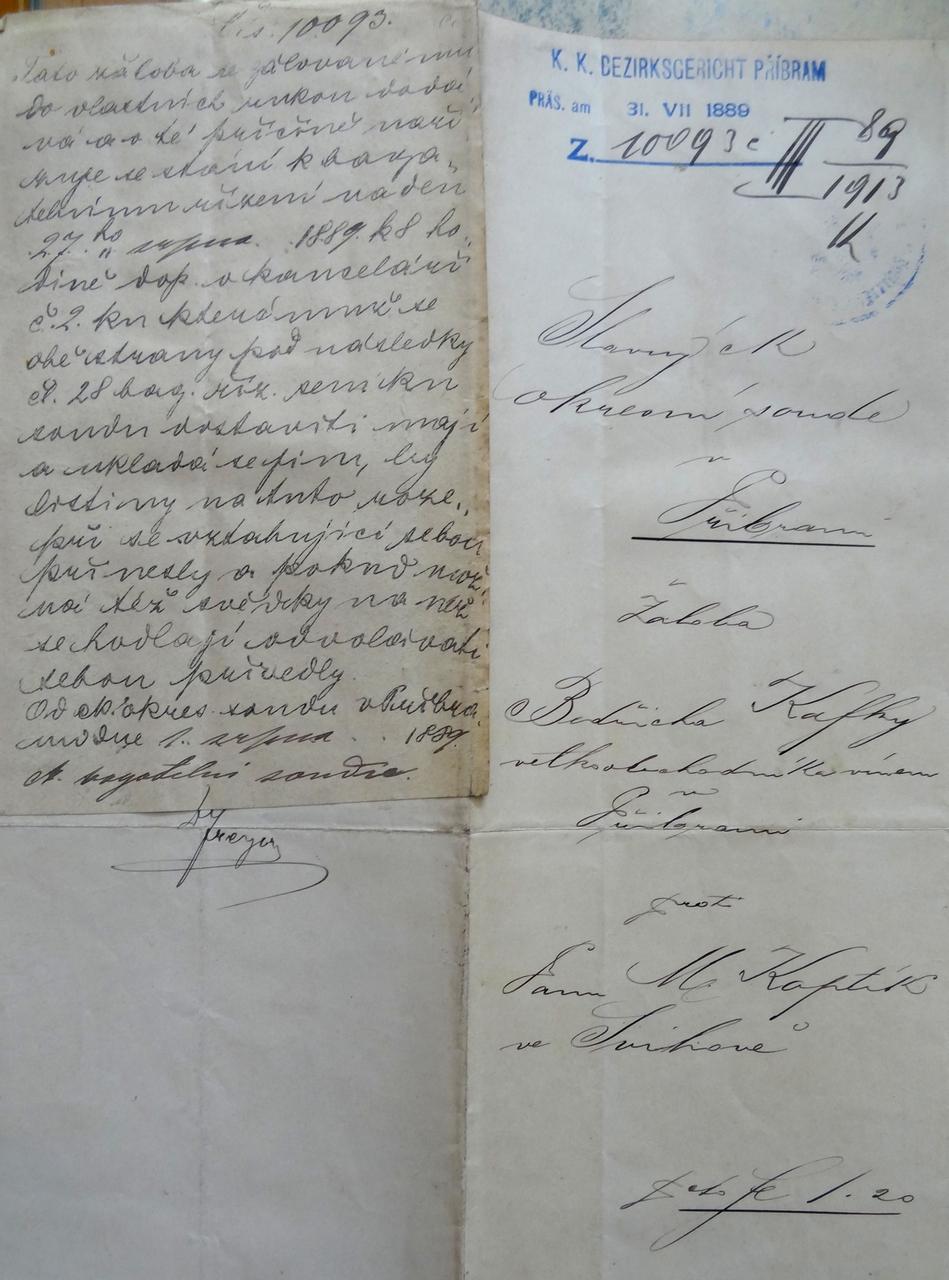 Čís. 10093.
Tato žaloba se žalovanému
do vlastních rukou dodá
vá a o té příčině naři
zuje se stání k baga,
telnímu řízení na den
27.ho srpna 1889. k 8 ho,
dině dop. v kanceláři
č. 2. ku kterémuž se
obě strany pod následky
čl. 28 bag. říz. sem ku
soudu dostaviti mají
a ukládá se jim, by
listiny na tuto roze,,
při se vztahující sebou
přinesly a pokud mož,
ná též svědky na něž
se hodlají odvolávati
sebou přivedly.
Od c.k. okres. soudu v Příbra,
mi dne 1. srpna . . 1889.
C.k. bagatelní soudce.
K. K. BEZIRKSGERICHT PŘÍBRAM
PRÄS. am 31. VII 1889
Z. 10093 c III 89
1913
Slavný ck
okresní soude
v
Příbrami
Žaloba
Bedřicha Kafky
velkoobchodníka vínem
v
Příbrami
proti
Panu M. Koptík
ve Svihově
pcto fl 1.20